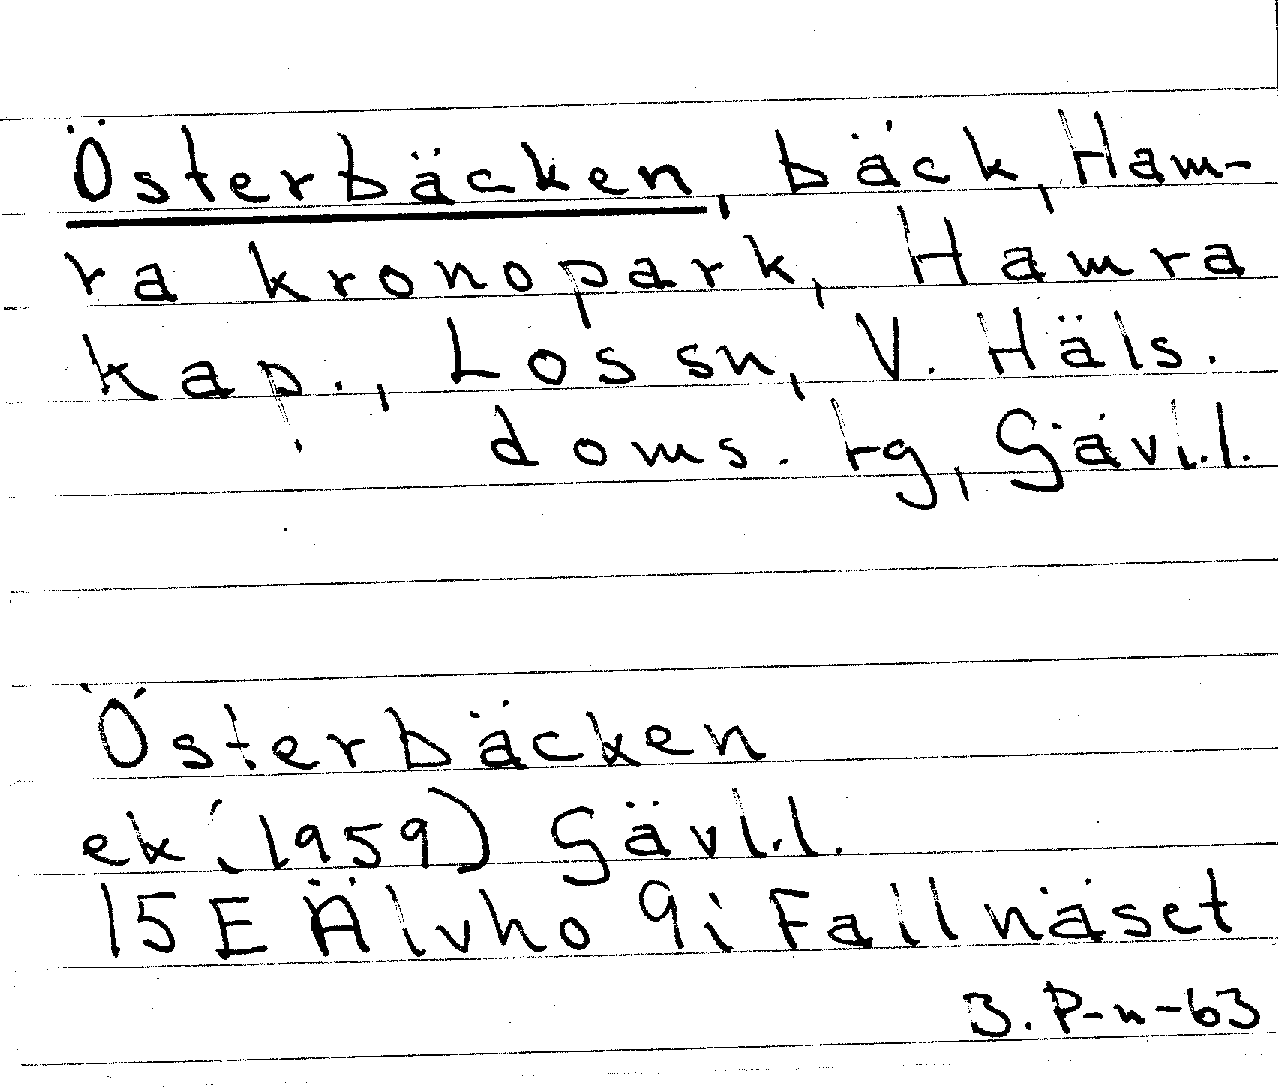 Österbäcken, bäck, Ham-
ra kronopark, Hamra
kap., Los sn, V. Häls.
doms. rg, Gävl.l.
Österbäcken
ek (1959) Gävl.l.
15E Älvho 9i Fallnäset
3. P-n-63